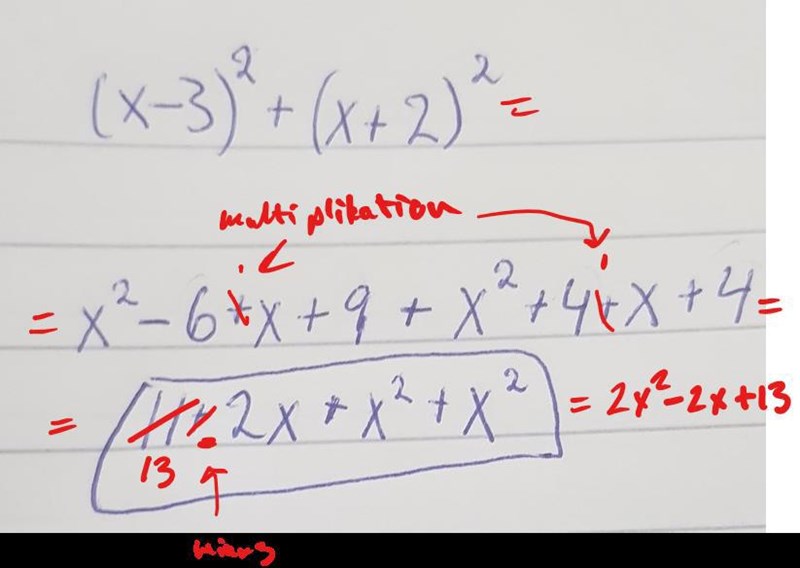 (x-3)² + (x+2)² =
multiplikation
= x² - 6 + x + 9 + x² + 4 + x + 4 =
= 11 + 2x + x² + x² = 2x² - 2x + 13
13
minus